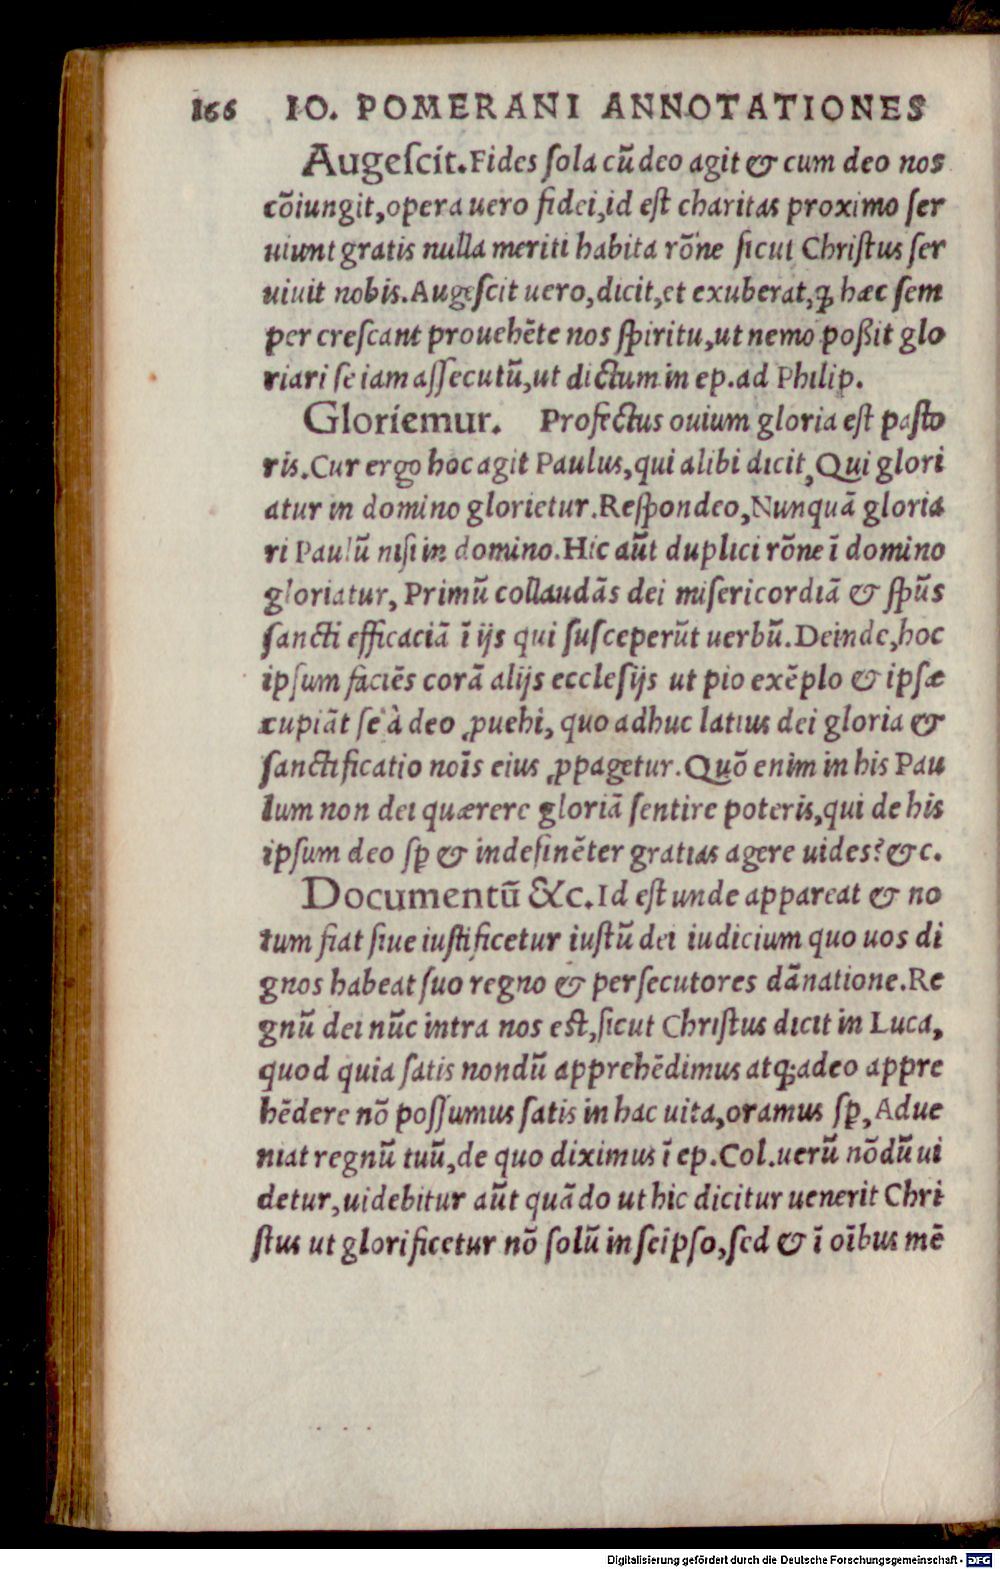 166 IO. POMERANI ANNOTATIONES
Augeſcit. Fides ſola cũ deo agit & cum deo nos
cõiungit, opera uero fidei, id eſt charitas proximo ſer
uiunt gratis nulla meriti habita rõne ſicut Chriſtus ſer
uiuit nobis. Augeſcit uero, dicit, et exuberat, ꝙ hæc ſem
per creſcant prouehẽte nos ſpiritu, ut nemo poßit glo
riari ſe iam aſſecutũ, ut dictum in ep. ad Philip.
Gloriemur. Profectus ouium gloria eſt paſto
ris. Cur ergo hoc agit Paulus, qui alibi dicit, Qui glori
atur in domino glorietur. Reſpondeo, Nunquã gloria
ri Paulũ niſi in domino. Hic aũt duplici rõne ĩ domino
gloriatur, Primũ collaudãs dei miſericordiã & ſpũs
ſancti efficaciã ĩ ijs qui ſuſceperũt uerbũ. Deinde, hoc
ipſum faciẽs corã alijs eccleſijs ut pio exẽplo & ipſæ
cupiãt ſe à deo ꝓuehi, quo adhuc latius dei gloria &
ſanctificatio noĩs eius ꝓpagetur. Quõ enim in his Pau
lum non dei quærere gloriã ſentire poteris, qui de his
ipſum deo ſꝑ & indeſinẽter gratias agere uides? &c.
Documentũ &c. Id eſt unde appareat & no
tum fiat ſiue iuſtificetur iuſtũ dei iudicium quo uos di
gnos habeat ſuo regno & perſecutores dãnatione. Re
gnũ dei nũc intra nos eſt, ſicut Chriſtus dicit in Luca,
quod quia ſatis nondũ apprehẽdimus atq; adeo appre
hẽdere nõ poſſumus ſatis in hac uita, oramus ſꝑ, Adue
niat regnũ tuũ, de quo diximus ĩ ep. Col. uerũ nõdũ ui
detur, uidebitur aũt quãdo ut hic dicitur uenerit Chri
ſtus ut glorificetur nõ ſolũ in ſeipſo, ſed & ĩ oĩbus mẽ
Digitalisierung gefördert durch die Deutsche Forschungsgemeinschaft - DFG